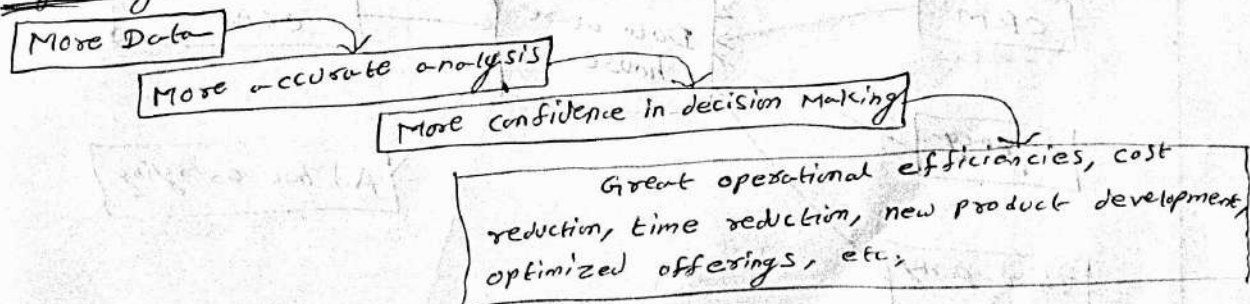 More Data
More accurate analysis
More confidence in decision Making
Great operational efficiencies, cost
reduction, time reduction, new product development,
optimized offerings, etc,